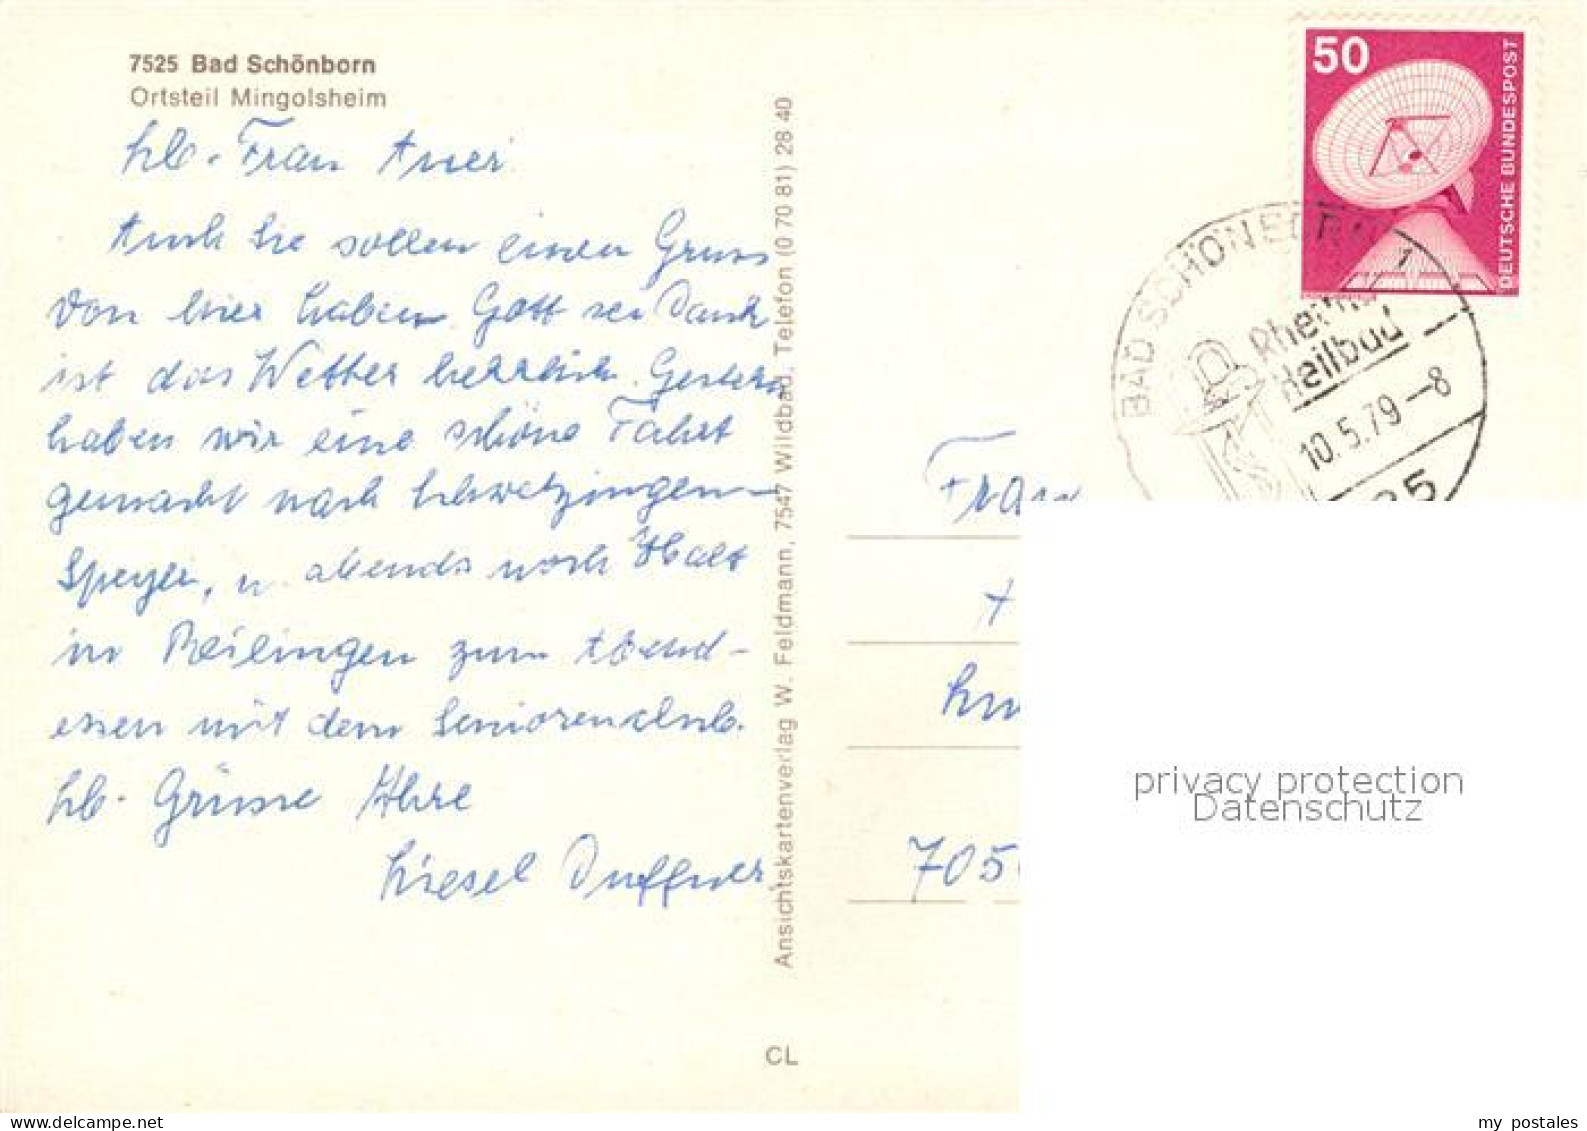 7525 Bad Schönborn
Ortsteil Mingolsheim
Lb. Frau Auer
Auch Sie sollen einen Gruss
von hier haben. Gott sei Dank
ist das Wetter herrlich. Gestern
haben wir eine schöne Fahrt
gemacht nach Schwetzingen -
Speyer, u. abends noch Halt
in Reilingen zum Abend-
essen mit dem Seniorenclub.
Lb. Grüsse Ihre
Liesel Duffner
Ansichtskartenverlag W. Feldmann, 7547 Wildbad, Telefon (0 70 81) 28 40
CL
50
DEUTSCHE BUNDESPOST
BAD SCHÖNBORN 1
Heilbad
10.5.79-8
Frau
705
privacy protection
Datenschutz
my postales